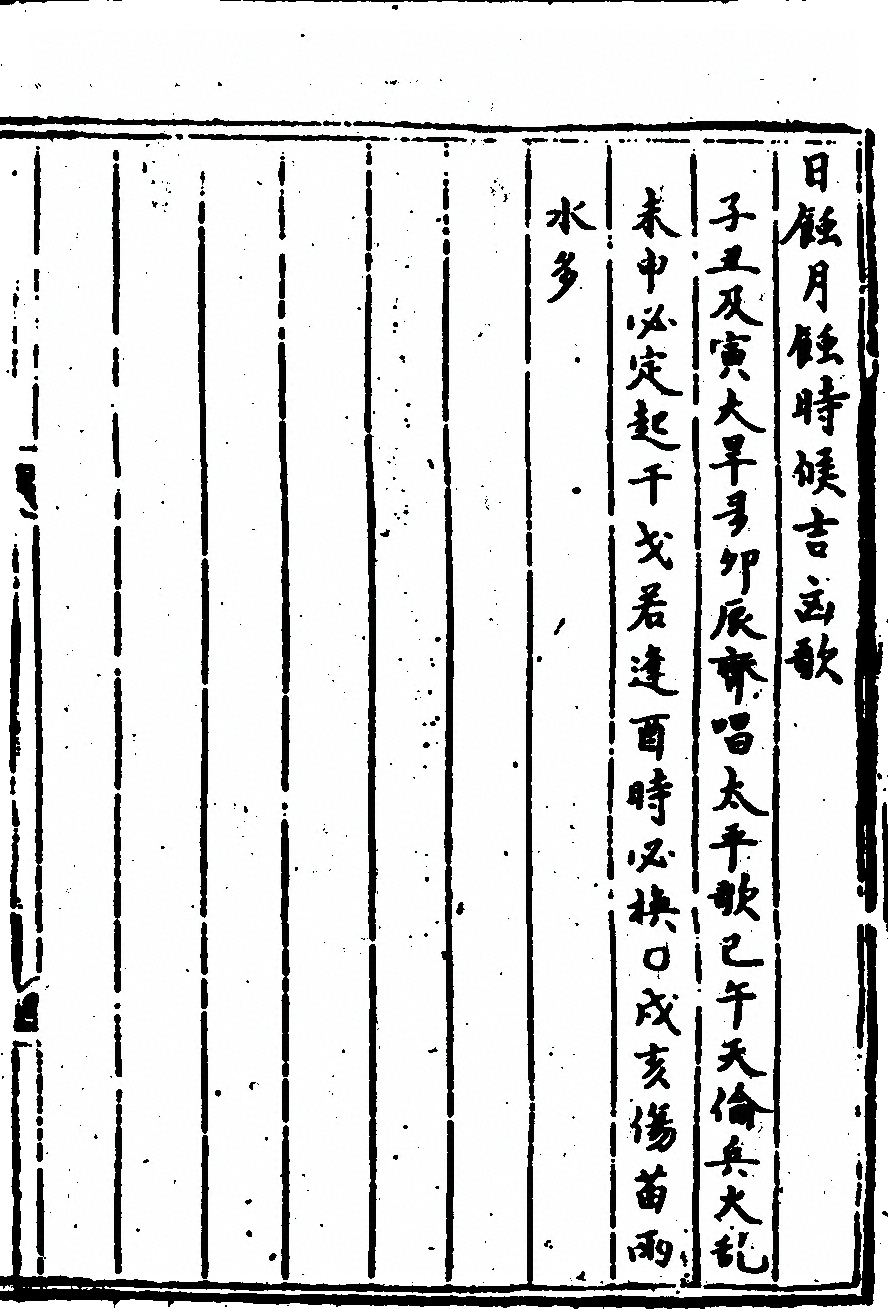 日蝕月蝕時候吉㐫歌
子丑及寅大旱多卯辰齊唱太平歌巳午天倫兵火乱
未申必定起干戈若逢酉時必換口戌亥傷苗雨
水多